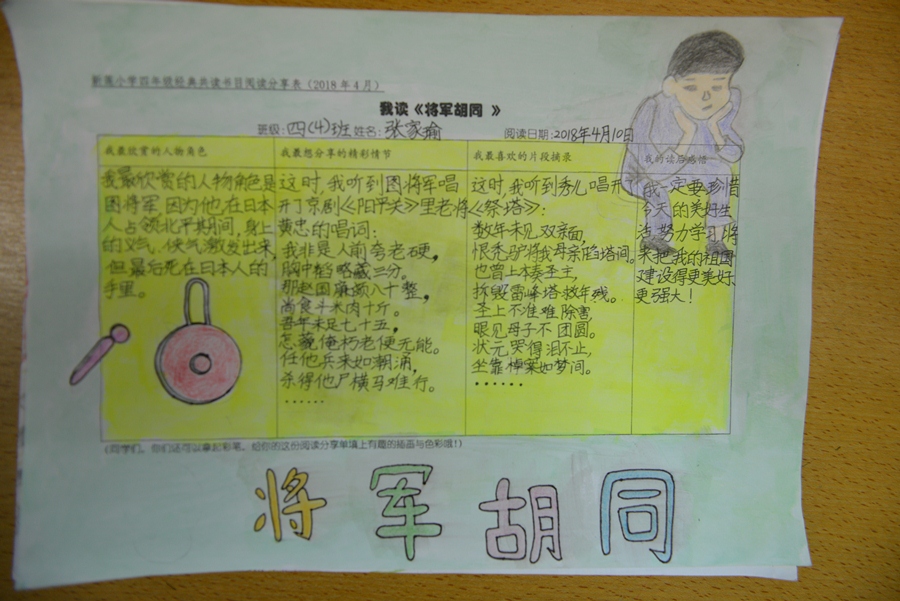 新莲小学四年级经典共读书目阅读分享表（2018年4月）
我读《将军胡同 》
班级：四(4)班 姓名：张家瑜 阅读日期：2018年4月10日
我最欣赏的人物角色
我最欣赏的人物角色是
图将军，因为他，在日本
人占领北平期间，身上
的义气、侠气激发出来，
但最后死在日本人的
手里。
我最想分享的精彩情节
这时，我听到图将军唱
开了京剧《阳平关》里老将
黄忠的唱词：
我非是人前夸老硬，
胸中韬略藏三分。
那赵国廉颇八十整，
尚食斗米肉十斤。
吾年未足七十五，
怎藐俺朽老便无能。
任他兵来如潮涌，
杀得他尸横马难行。
......
我最喜欢的片段摘录
这时，我听到秀儿唱开了
《祭塔》：
数年未见双亲面，
恨秃驴将我母亲陷塔间。
也曾上本奏圣主，
拆毁雷峰塔救年残。
圣上不准难除害，
眼见母子不团圆。
状元哭得泪不止，
坐靠 如梦间。
......
我的读后感悟
我一定要珍惜
今天的美好生
活，努力学习，将
来把我的祖国
建设得更美好、
更强大！
（同学们，你们还可以拿起彩笔，给你的这份阅读分享单填上有趣的插画与色彩哦！）
将军胡同